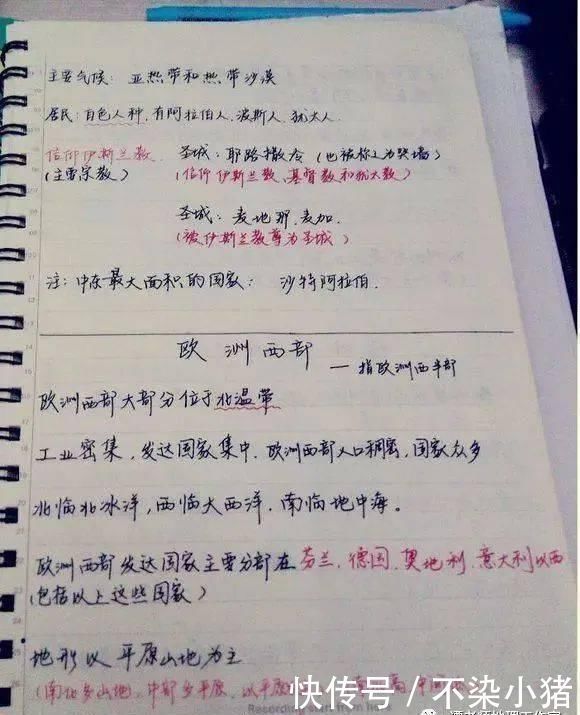 主要气候：亚热带和热带沙漠
居民：白色人种，有阿拉伯人、波斯人、犹太人．
信仰伊斯兰教 圣城：耶路撒冷（也被称之为哭墙）
（主要宗教） （信仰伊斯兰教、基督教和犹太教）
圣城：麦地那、麦加．
（被伊斯兰教尊为圣城）
注：中东最大面积的国家： 沙特阿拉伯．
欧洲西部
—指欧洲西半部
欧洲西部大部分位于北温带
工业密集，发达国家集中．欧洲西部人口稠密，国家众多
北临北冰洋，西临大西洋．南临地中海。
欧洲西部发达国家主要分部在芬兰、德国、奥地利、意大利以西
（包括以上这些国家）
地形以平原山地为主
（南北多山地，中部多平原，以平原
快传号／不染小猪
Recording